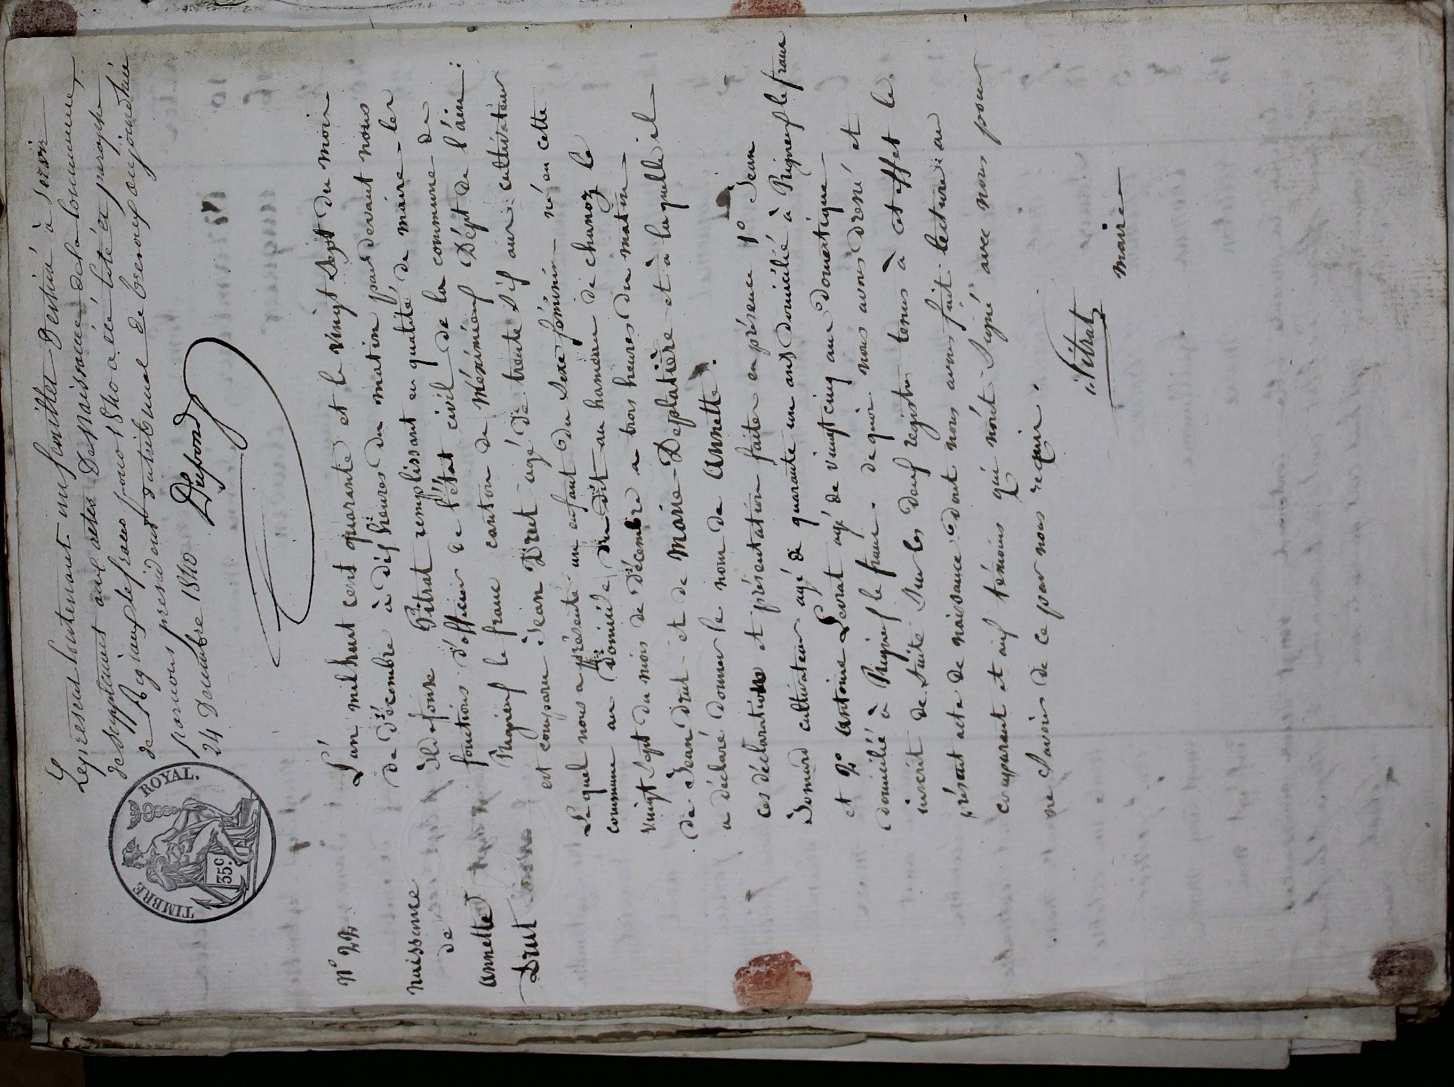 Le present hautenant un feuillet destiné à servir
de supplément aux actes de Naissance de la Commune
de Rignieux le franc pour 1840 a été coté et paraphé
par nous president du tribunal de Trevoux aujourd'hui
24 Decembre 1840
Dufour
TIMBRE ROYAL.
35c.
N° 22
naissance
de
annette
Drut
L'an mil huit cent quarante et le vingt Sept du mois
de décembre à dix heures du matin pardevant nous
ildefonse Pitrat remplissant en quatité de maire les
fonctions d'officier de l'état civil de la commune de
Rignieux le franc canton de Méximieux Dépt de l'ain :
est comparu Jean Drut agé de trente six ans cultivateur
Le quel nous a présenté un enfant du Sexe féminin né en cette
commune au domicile du dit au hameau de chanoz le
vingt sept du mois de décembre a trois heures du matin
de Jean drut et de Marie Desplatière et à laquelle il
a déclaré donner le nom de Annette.
ces déclarations et présentation faites en présence 1° Jean
cultivateur agé de quarante un ans domicilié à Rigneux le franc
et 2° antoine Levrat agé de vingt cinq ans domestique
domicilié à Rigneux le franc. de quoi nous avons dressé et
inscrit de Suite Sur les deux registres tenus à cet effet le
présent acte de naissance dont nous avons fait lecture au
comparant et aux témoins qui n'ont Signé avec nous pour
ne Savoir de ce par nous requis.
Pitrat
maire